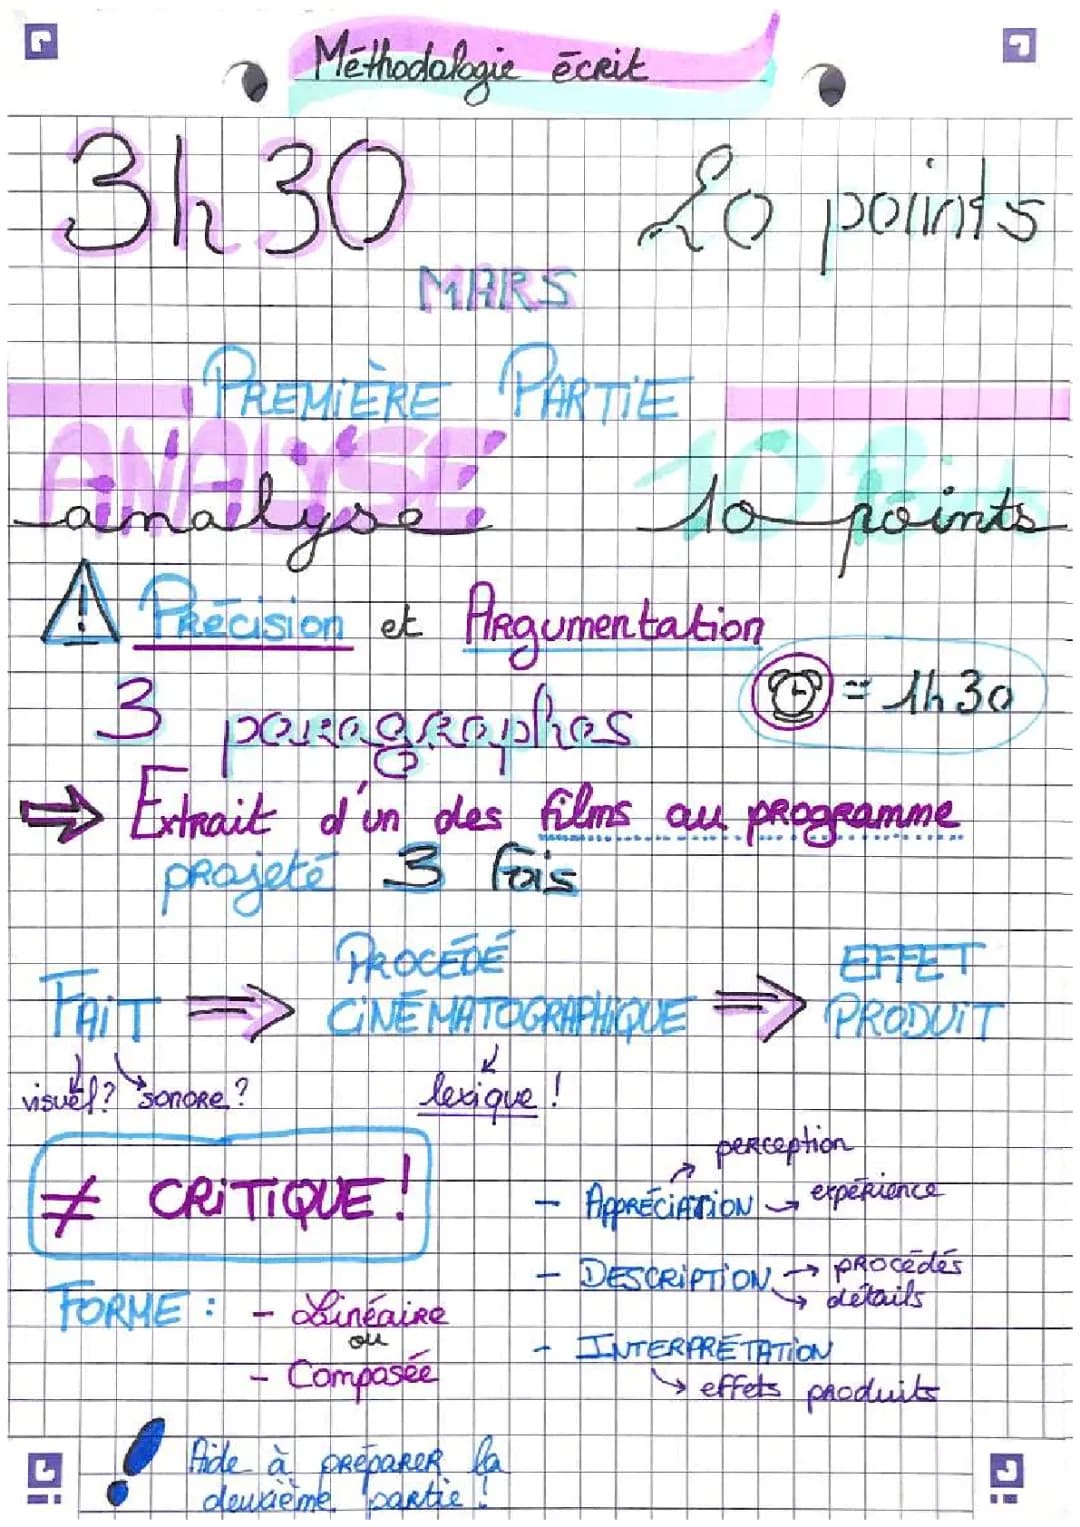 Méthodologie écrit
3h30 20 points
MARS
PREMIÈRE PARTIE
ANALYSE 10 Points
analyse 10 points
! Précision et Argumentation
= 1h30
3 paragraphes
⇒ Extrait d'un des films au programme
projeté 3 fois
FAIT ⇒ PROCÉDÉ CINÉMATOGRAPHIQUE ⇒ EFFET PRODUIT
visuel? sonore? lexique!
≠ CRITIQUE!
perception
- APPRÉCIATION → expérience
- DESCRIPTION → procédés
→ détails
FORME : - Linéaire
ou
- Composée
- INTERPRÉTATION
→ effets produits
! Aide à préparer la
deuxième partie!